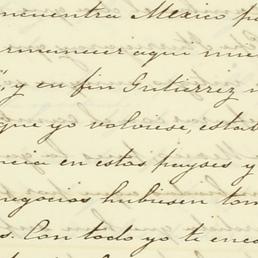 ncuentra Mexico p
ermanecer aqui mu
y en fin Gutierrez
que yo volviese, esta
ncia en estos payses y
negocios hubiesen tom
s. Con todo yo te enca